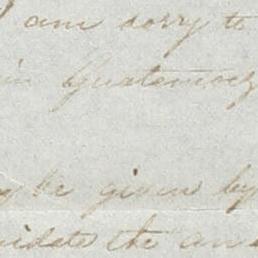 I am sorry to
in Guatemoc
be given by
idate the an